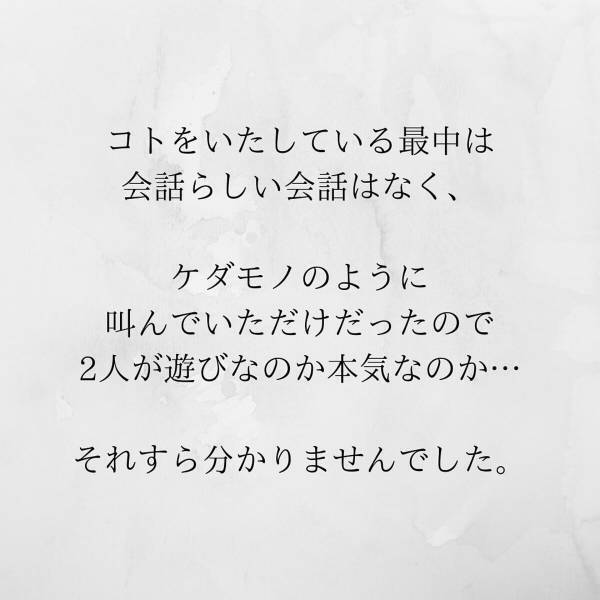 コトをいたしている最中は
会話らしい会話はなく、
ケダモノのように
叫んでいただけだったので
2人が遊びなのか本気なのか…
それすら分かりませんでした。